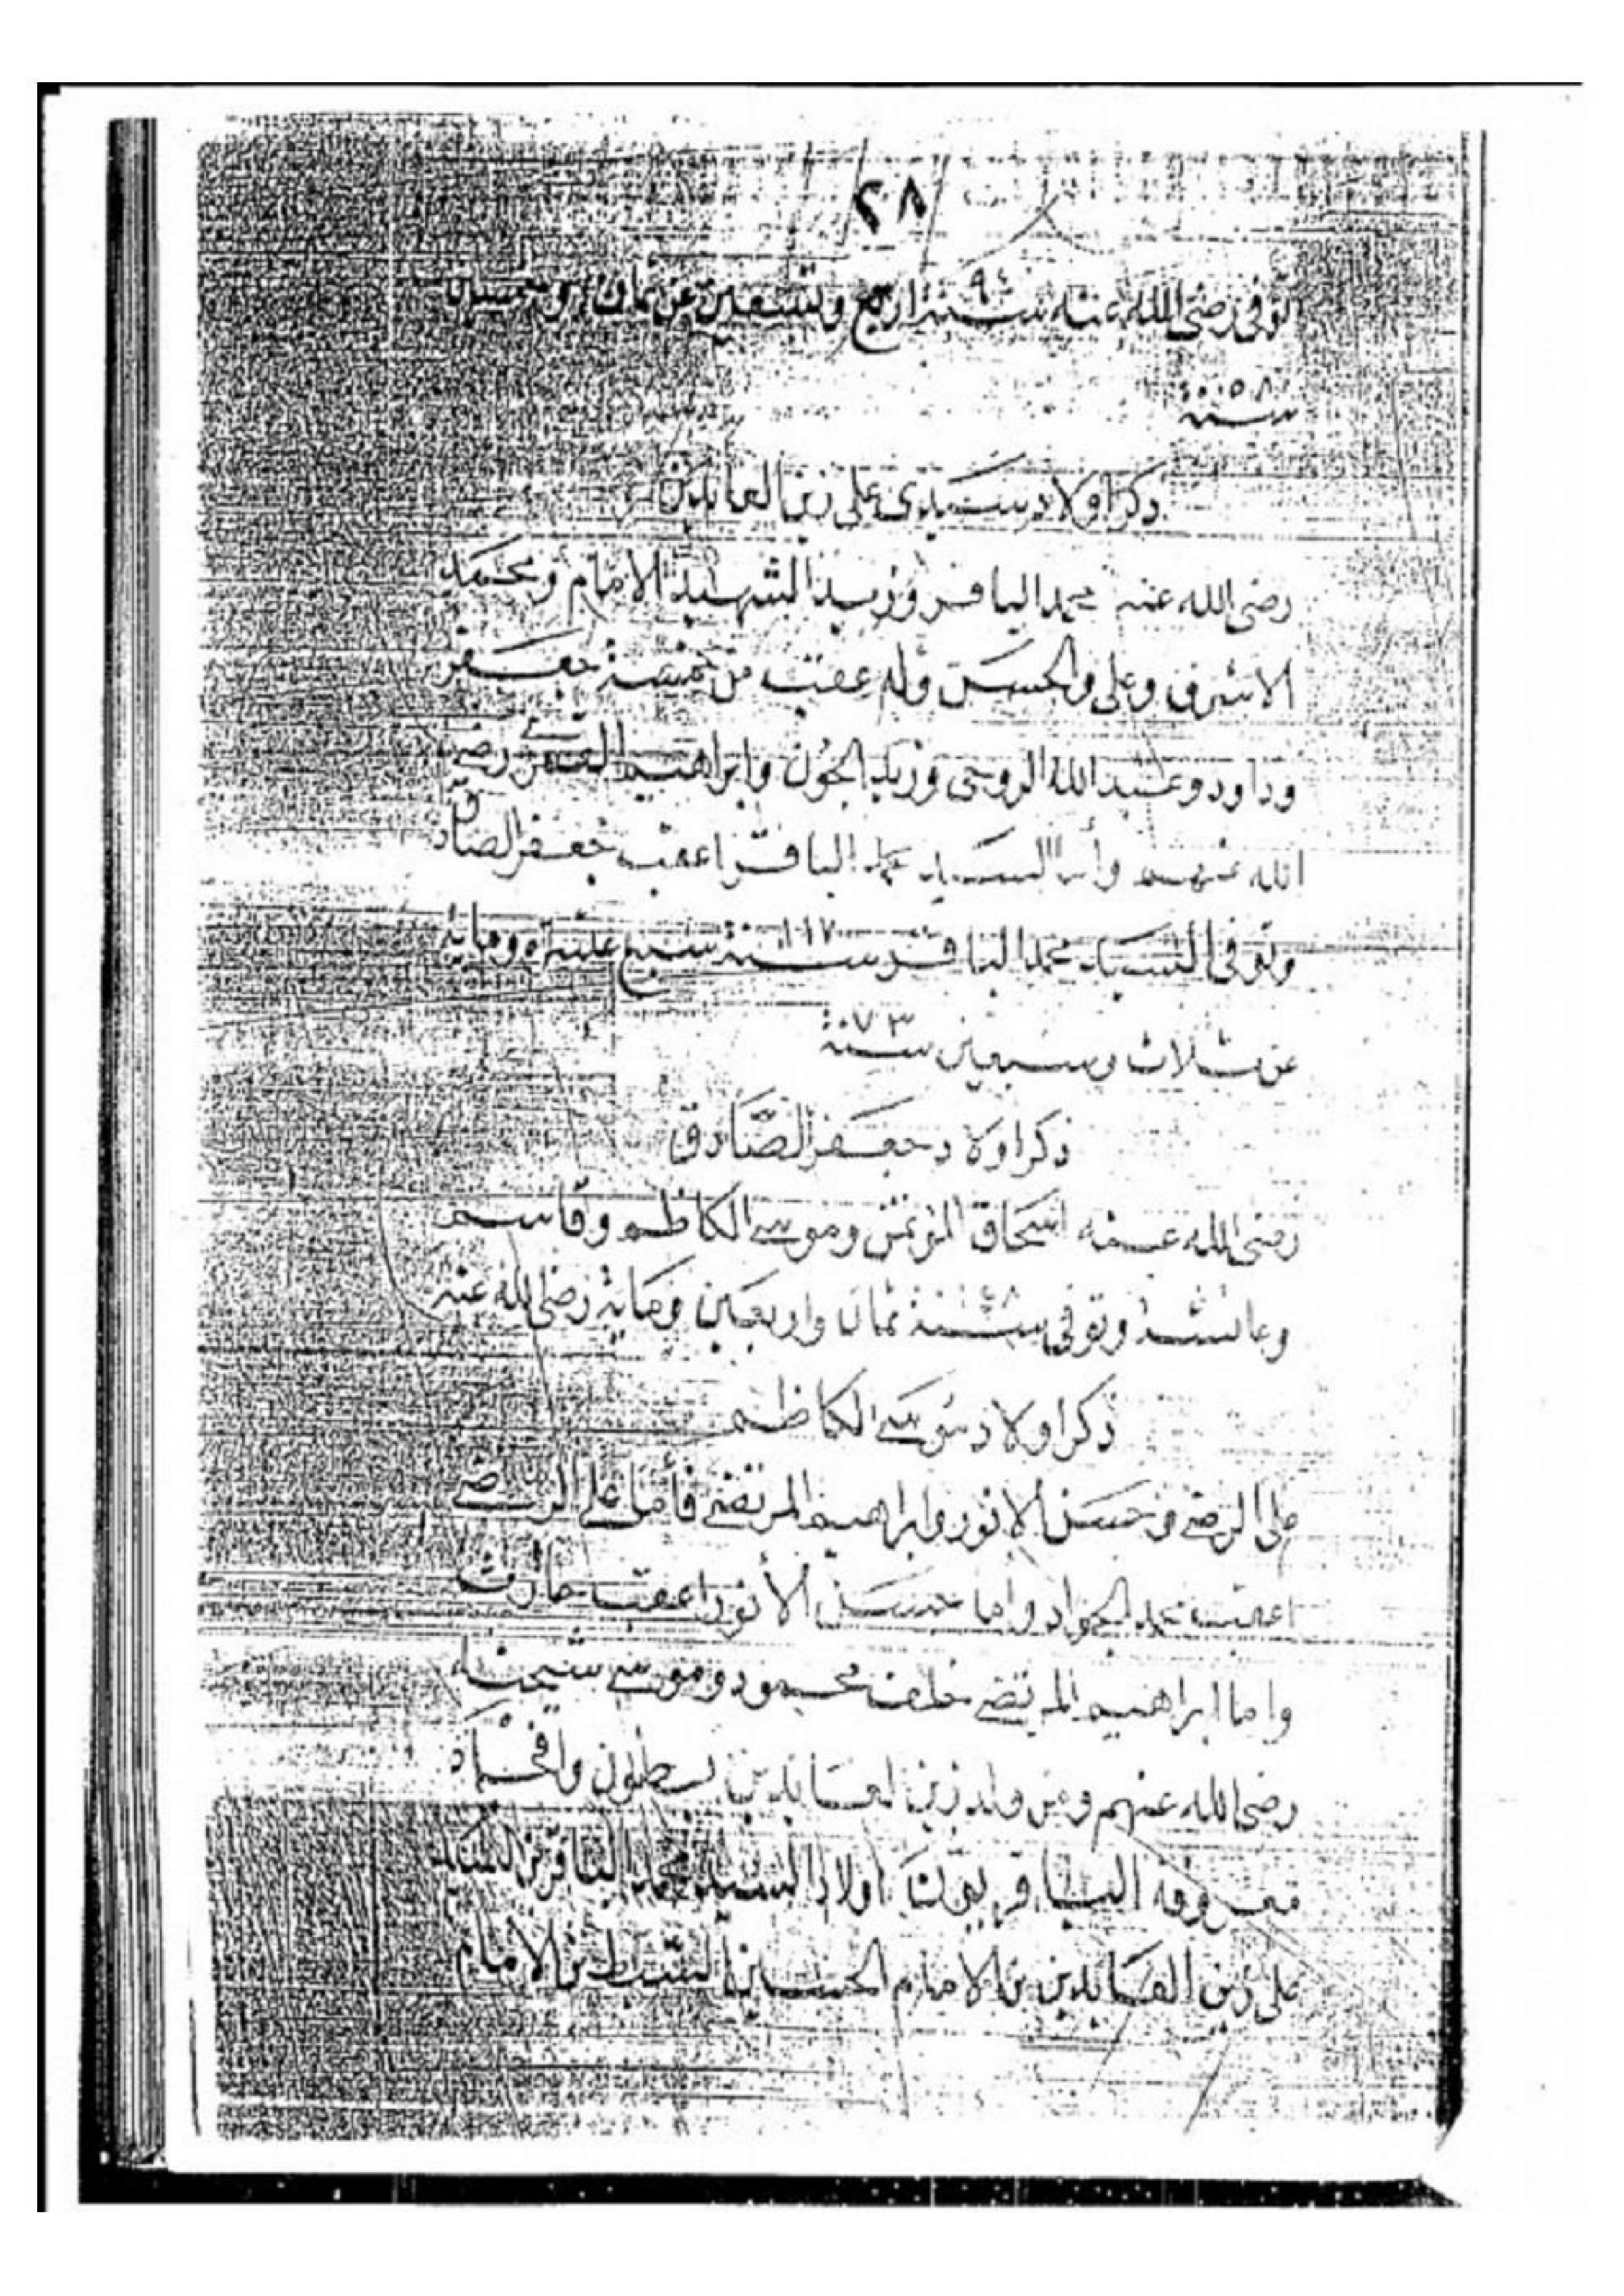 ٢٨
توفى رضى الله عنه سنة ٩٤ اربع وتسعين عن ثمان وخمسين
سنة ٥٨
ذكر اولاد سيدى على زين العابدين
رضى الله عنه محمد الباقر وزيد الشهيد الامام ومحمد
الاشرف وعلى والحسين وله عقب من خمسة جعفر
وداود وعبد الله الروحى وزيد الجون وابراهيم القمرى رضى
الله عنهم وأما السيد محمد الباقر اعقب جعفر الصادق
وتوفى السيد محمد الباقر سنة ١١٧ سبع عشره ومايه
عن ثلاث وسبعين سنة ٧٣
ذكر اولاد جعفر الصَّادق
رضى الله عنه اسحاق المؤتمن وموسى الكاظم وقاسم
وعائشه وتوفى سنة ٤٨ ثمان واربعين ومايه رضى الله عنه
ذكر اولاد موسى الكاظم
على الرضى وحسن الانور وابراهيم المرتضى فأما على الرضى
اعقب محمد الجواد واما حسن الأنور اعقب حارث
واما ابراهيم المرتضى خلف محمود وموسى
رضى الله عنهم ومن ولد زين العابدين بطون وافخاد
معروفه اولاد السيد محمد الباقر بن السيد
على زين العابدين بن الامام الحسين السبط بن الامام